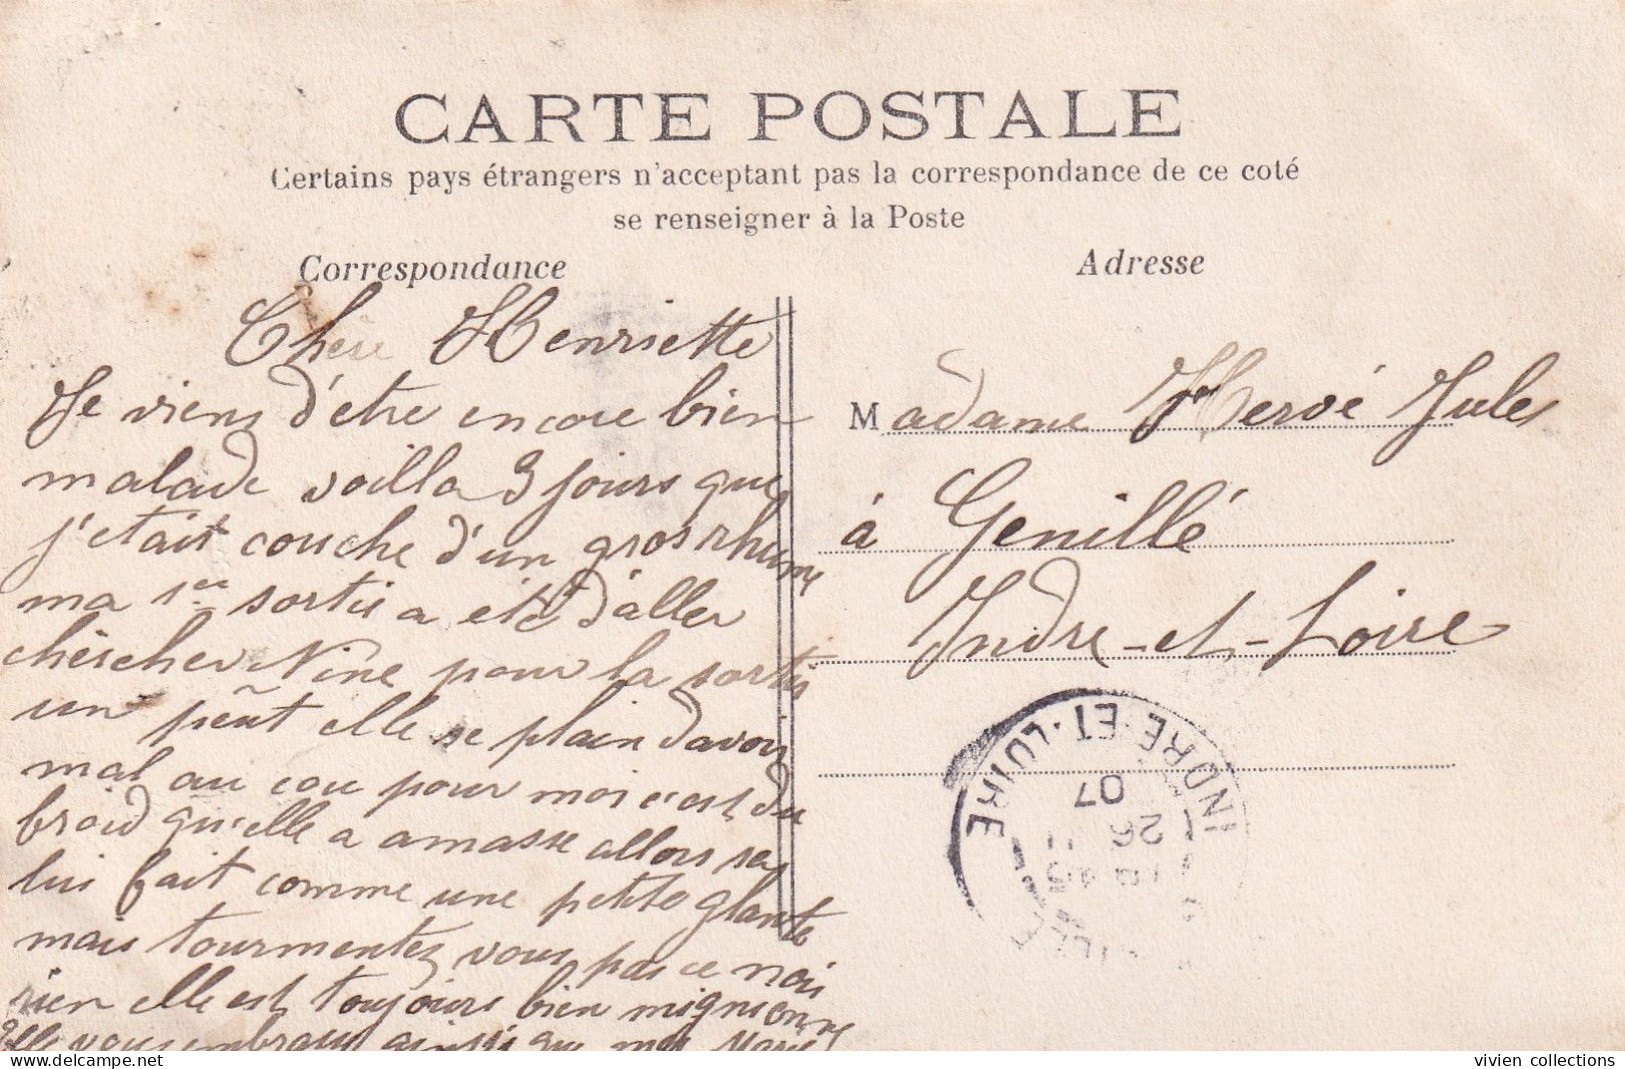 CARTE POSTALE
Certains pays étrangers n'acceptant pas la correspondance de ce coté
se renseigner à la Poste
Correspondance
Chere Henriette
Je viens d'être encore bien
malade voilla 3 jours que
j'etait couche d'un gros rhume
ma 1ere sortie a eté d'aller
chèrcher Nine pour la sortir
un peût elle se plain davoir
mal au cou pour moi c'est du
froid qu'elle a amasse allors sa
lui fait comme une petite glante
mais tourmentez vous pas ce nois
rien elle est toujours bien mignonne
elle vous embrasse ainsi que moi Marie
Adresse
Madame Hervé Jules
à Genillé
Indre-et-Loire
INDRE-ET-LOIRE
26
07
vivien collections